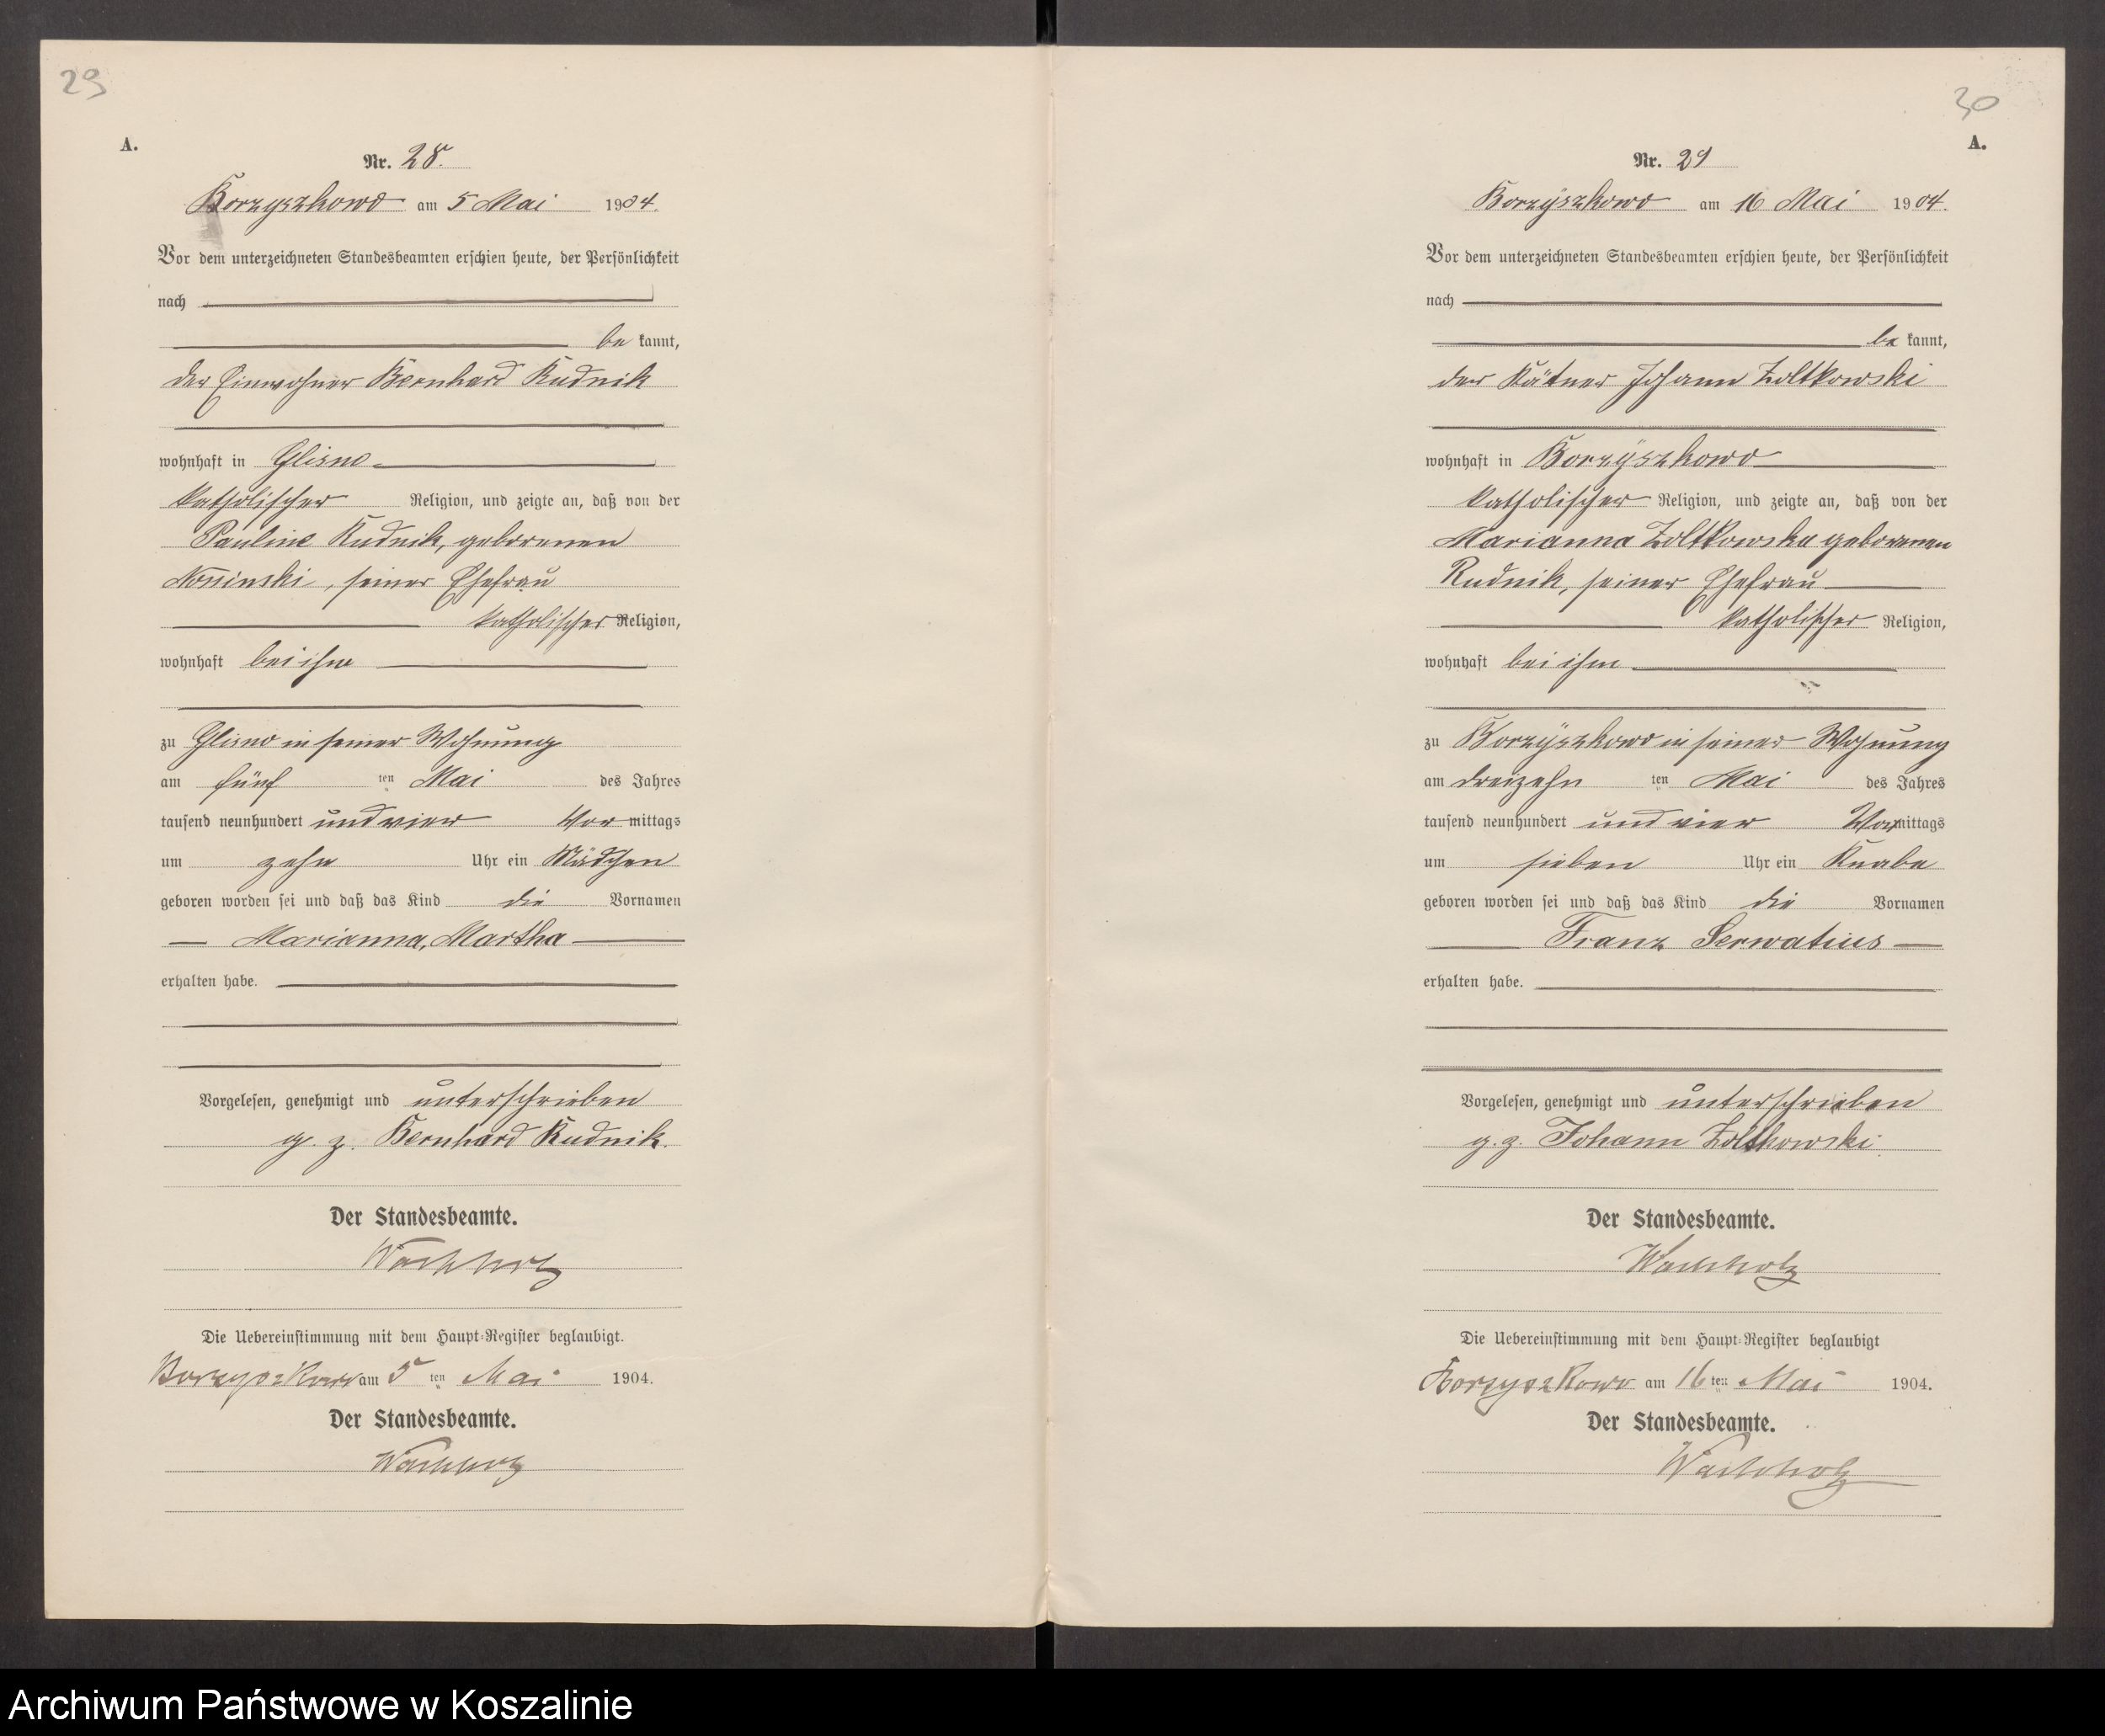 29
A.
Nr. 28.
Borzyszkowo am 5 Mai 1904.
Vor dem unterzeichneten Standesbeamten erschien heute, der Persönlichkeit
nach
be kannt,
der Einwohner Bernhard Rudnik
wohnhaft in Glisno
katholischer Religion, und zeigte an, daß von der
Pauline Rudnik, geborenen
Nossinski, seiner Ehefrau
katholischer Religion,
wohnhaft bei ihm
zu Glisno in seiner Wohnung
am fünf ten Mai des Jahres
tausend neunhundert und vier Vor mittags
um zehn Uhr ein Mädchen
geboren worden sei und daß das Kind die Vornamen
Marianna, Martha
erhalten habe.
Vorgelesen, genehmigt und unterschrieben
g. z. Bernhard Rudnik.
Der Standesbeamte.
Wachholz
Die Uebereinstimmung mit dem Haupt-Register beglaubigt.
Borzyszkowo am 5 ten Mai 1904.
Der Standesbeamte.
Wachholz
30
A.
Nr. 29
Borzyszkowo am 16 Mai 1904.
Vor dem unterzeichneten Standesbeamten erschien heute, der Persönlichkeit
nach
be kannt,
der Kätner Johann Zoltkowski
wohnhaft in Borzyszkowo
katholischer Religion, und zeigte an, daß von der
Marianna Zoltkowska geborenen
Rudnik, seiner Ehefrau
katholischer Religion,
wohnhaft bei ihm
zu Borzyszkowo in seiner Wohnung
am dreizehn ten Mai des Jahres
tausend neunhundert und vier Vormittags
um sieben Uhr ein Knabe
geboren worden sei und daß das Kind die Vornamen
Franz Serwatius
erhalten habe.
Vorgelesen, genehmigt und unterschrieben
g. z. Johann Zoltkowski
Der Standesbeamte.
Wachholz
Die Uebereinstimmung mit dem Haupt-Register beglaubigt
Borzyszkowo am 16 ten Mai 1904.
Der Standesbeamte.
Wachholz
Archiwum Państwowe w Koszalinie